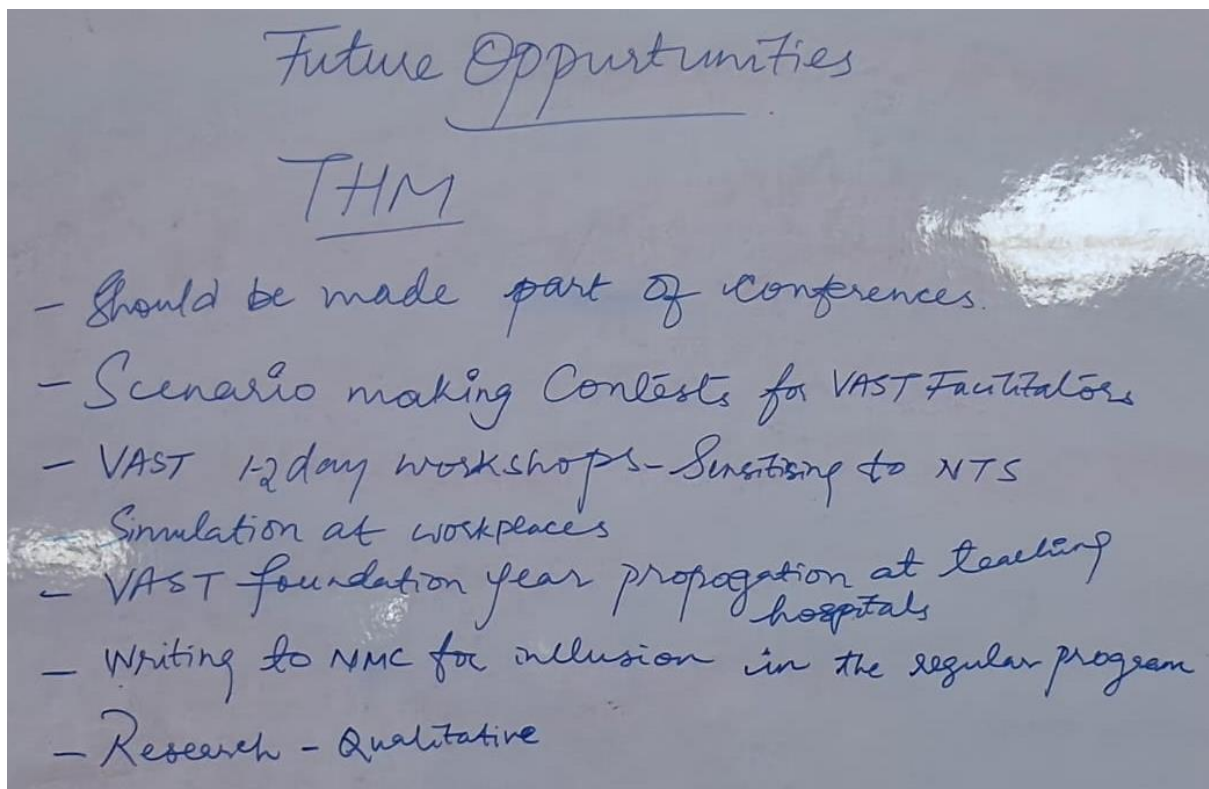 Future Oppurtunities
THM
- Should be made part of conferences.
- Scenario making Contests for VAST Facilitators
- VAST 1-2 day workshops - Sensitising to NTS
- Simulation at workplaces
- VAST foundation year propogation at teaching
hospitals
- Writing to NMC for inclusion in the regular program
- Research - Qualitative